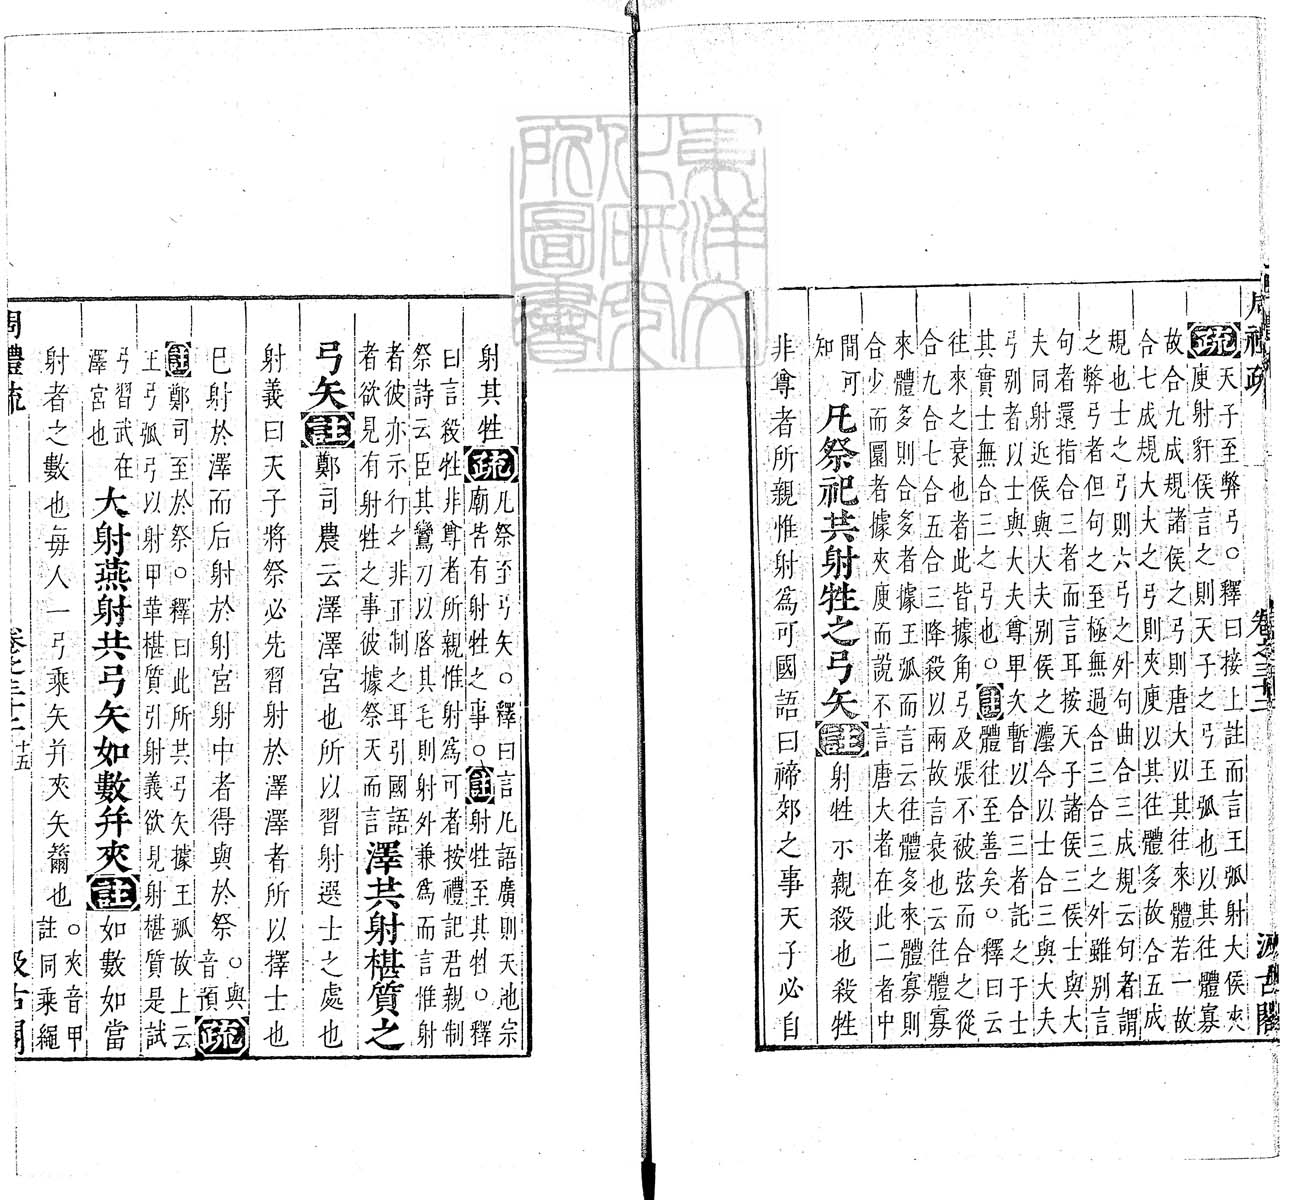 周禮疏 卷之三十二 汲古閣
疏天子至弊弓○釋曰接上註而言王弧射大侯夾
庾射豻侯言之則天子之弓王弧也以其往體寡
故合九成規諸侯之弓則唐大以其往來體若一故
合七成規大大之弓則夾庾以其往體多故合五成
規也士之弓則六弓之外句曲合三成規云句者謂
之弊弓者但句之至極無過合三合三之外雖別言
句者還指合三者而言耳按天子諸侯三侯士與大
夫同射近侯與大夫別侯之灋今以士合三與大夫
弓別者以士與大夫尊卑次暫以合三者託之于士
其實士無合三之弓也○註體往至善矣○釋曰云
往來之衰也者此皆據角弓及張不被弦而合之從
合九合七合五合三降殺以兩故言衰也云往體寡
來體多則合多者據王弧而言云往體多來體寡則
合少而圜者據夾庾而說不言唐大者在此二者中
間可
知
凡祭祀共射牲之弓矢註射牲示親殺也殺牲
非尊者所親惟射為可國語曰禘郊之事天子必自
射其牲疏
凡祭至弓矢○釋曰言凡語廣則天地宗
廟皆有射牲之事○註射牲至其牲○釋
曰言殺牲非尊者所親惟射為可者按禮記君親制
祭詩云臣其鸞刀以啓其毛則射外兼為而言惟射
者彼亦示行之非正制之耳引國語
者欲見有射牲之事彼據祭天而言
澤共射椹質之
弓矢註鄭司農云澤澤宮也所以習射選士之處也
射義曰天子將祭必先習射於澤澤者所以擇士也
已射於澤而后射於射宮射中者得與於祭
○與
音預
疏
註鄭司至於祭○釋曰此所共弓矢據王弧故上云
王弓弧弓以射甲革椹質引射義欲見射椹質是試
弓習武在
澤宮也
大射燕射共弓矢如數并夾註如數如當
射者之數也每人一弓乘矢并夾矢籋也
○夾音甲
註同乘繩
周禮疏 卷之三十二 十五 汲古閣
東洋文化研究所圖書